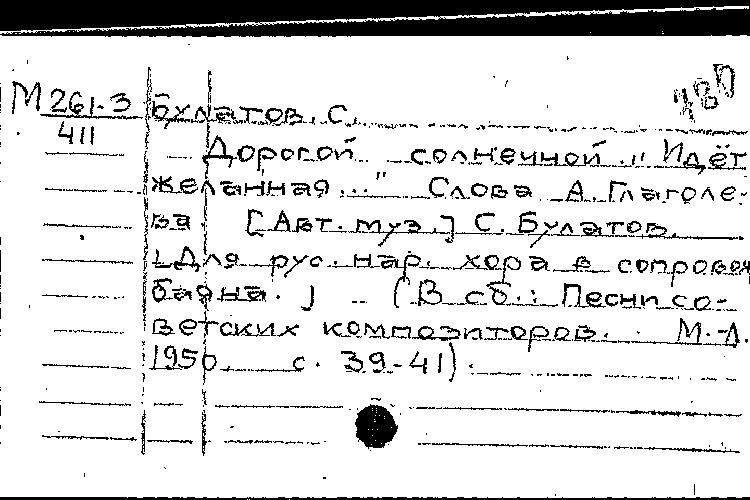 М 261-3
411
Булатов, С.
Дорогой солнечной „Идёт
желанная..." Слова А. Глаголе-
ва. [Авт. муз.] С. Булатов.
[Для рус. нар. хора в сопровож
баяна.] (В сб.: Песни со-
ветских композиторов. М.-Л.
1950, с. 39-41).